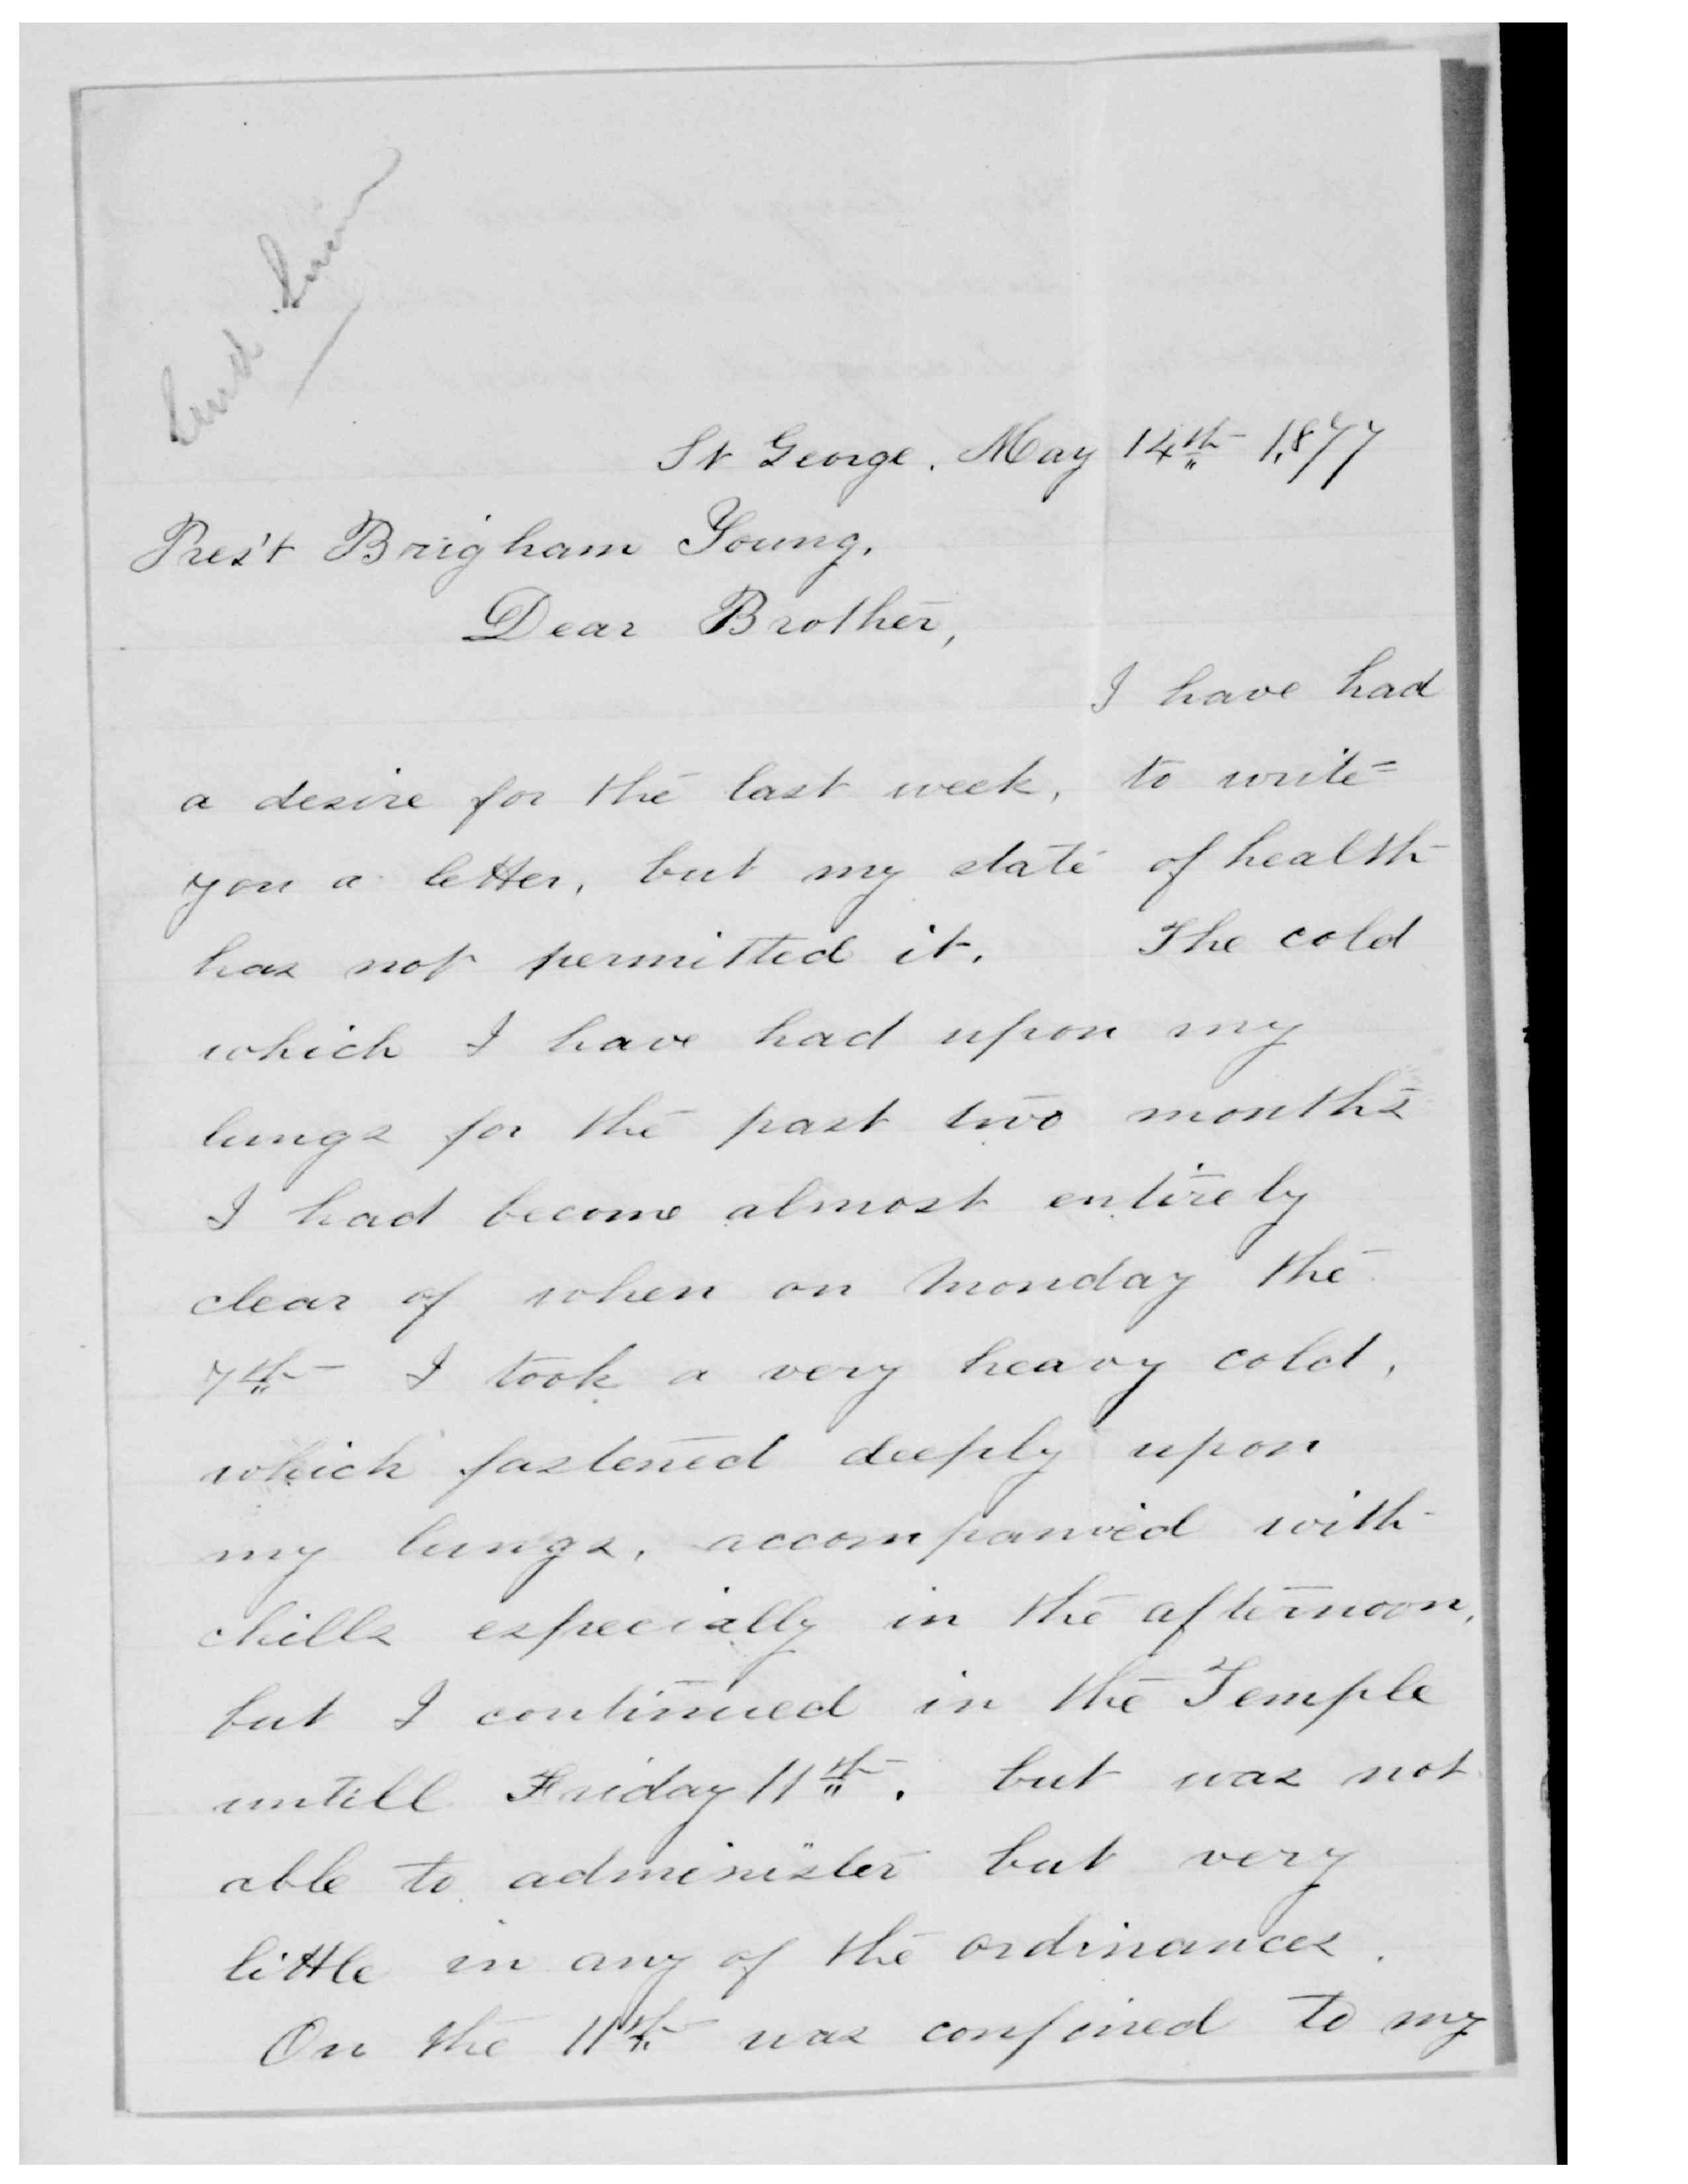 St George. May 14th 1877
Pres't Brigham Young.
Dear Brother,
I have had
a desire for the last week, to write
you a letter, but my state of health
has not permitted it. The cold
which I have had upon my
lungs for the past two months
I had become almost entirely
clear of when on Monday the
7th I took a very heavy cold,
which fastened deeply upon
my lungs, accompanied with
chills especially in the afternoon,
but I continued in the Temple
untill Friday 11th. but was not
able to administer but very
little in any of the ordinances.
On the 11th was confined to my